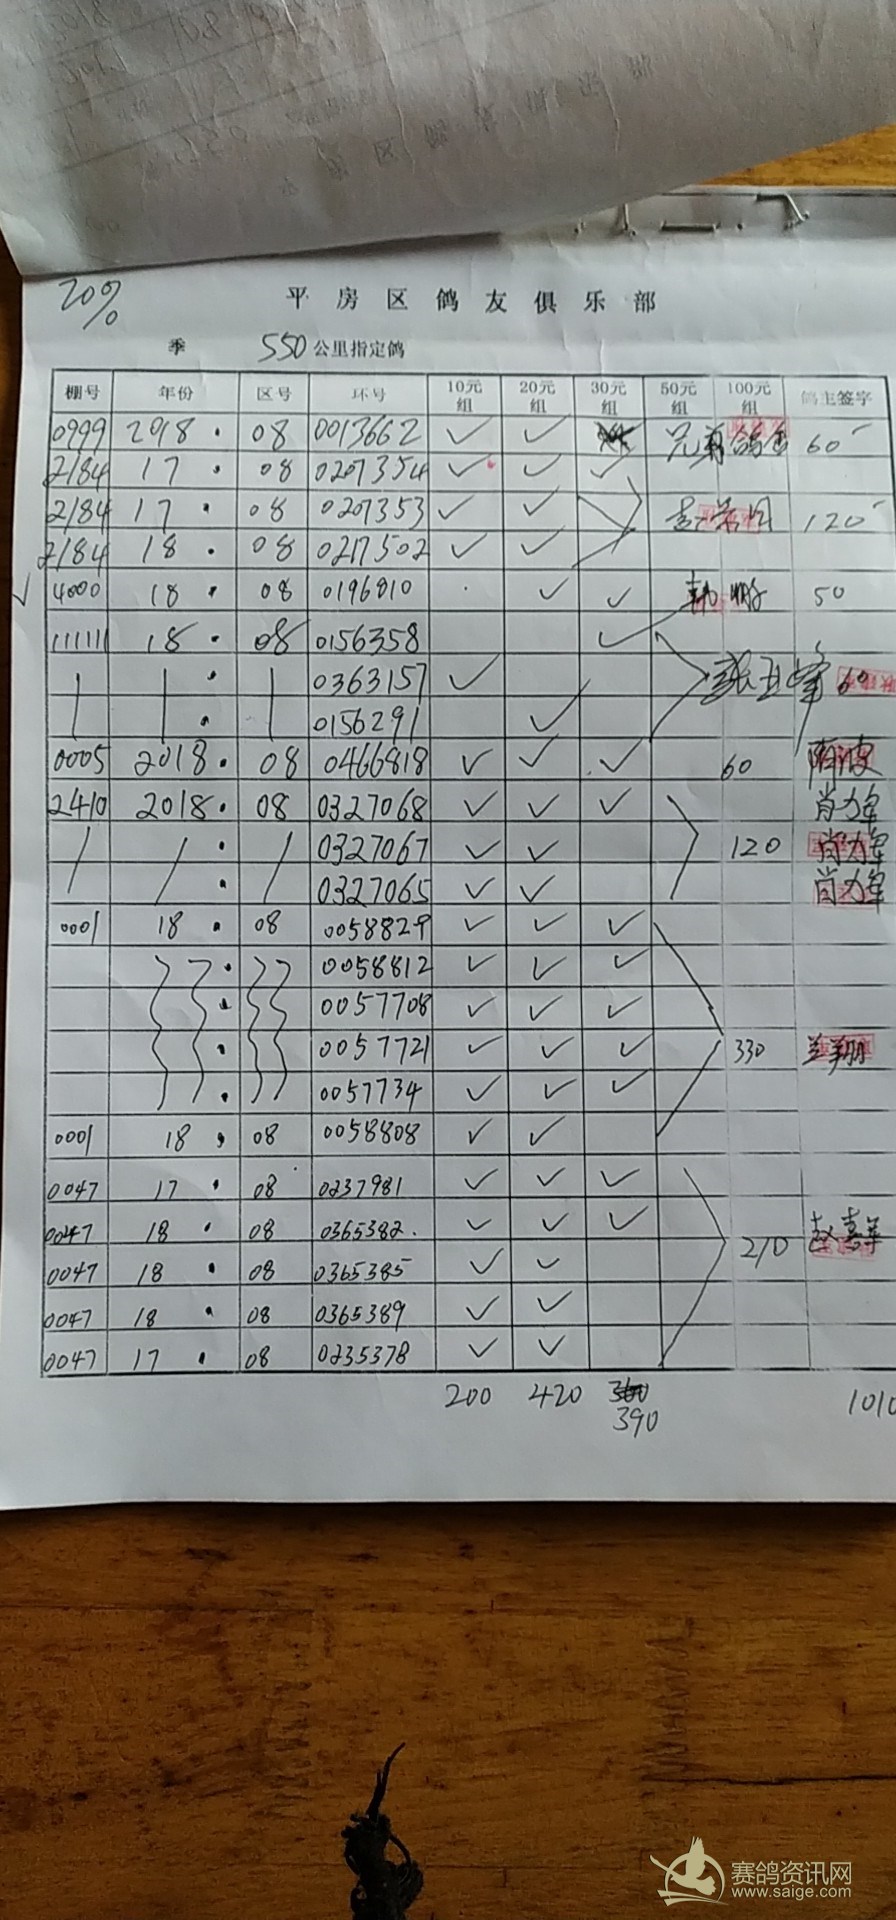 20%
平房区鸽友俱乐部
季 550公里指定鸽
棚号 年份 区号 环号 10元组 20元组 30元组 50元组 100元组 鸽主签字
0999 2018 · 08 0013662 ✓ ✓ 60
2184 17 · 08 0207354 ✓ ✓ ✓
2184 17 · 08 0207353 ✓ ✓ 120
2184 18 · 08 0217502 ✓ ✓
✓ 4000 18 · 08 0196810 · ✓ ✓ 50
111111 18 · 08 0156358 ✓
| | · | 0363157 ✓ 60
| | · | 0156291 ✓
0005 2018 · 08 0466818 ✓ ✓ ✓ 60
2410 2018 · 08 0327068 ✓ ✓ ✓ 肖力军
/ / · / 0327067 ✓ ✓ 120 肖力军
· 0327065 ✓ ✓ 肖力军
0001 18 · 08 0058829 ✓ ✓ ✓
· 0058812 ✓ ✓ ✓
· 0057708 ✓ ✓ ✓
· 0057721 ✓ ✓ ✓ 330 兰翔
· 0057734 ✓ ✓ ✓
0001 18 · 08 0058808 ✓ ✓
0047 17 · 08 0237981 ✓ ✓ ✓
0047 18 · 08 0365382. ✓ ✓ ✓ 210
0047 18 · 08 0365385 ✓ ✓
0047 18 · 08 0365389 ✓ ✓
0047 17 · 08 0235378 ✓ ✓
200 420 360 1010
390
赛鸽资讯网
www.saige.com